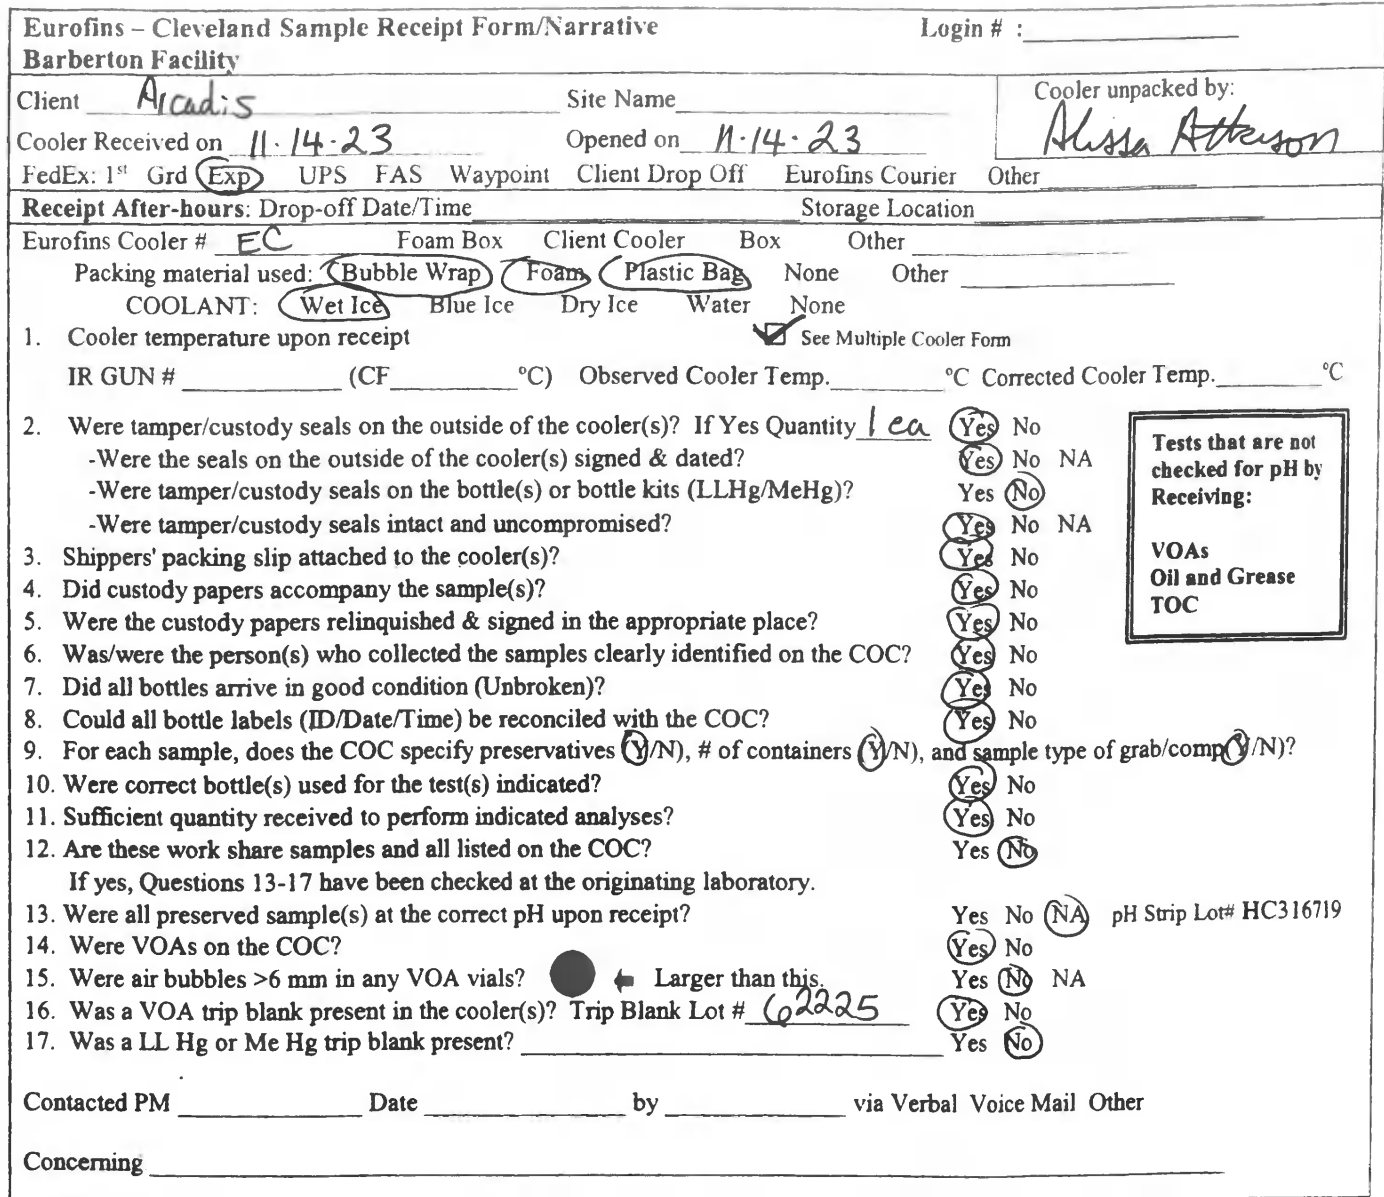 Eurofins – Cleveland Sample Receipt Form/Narrative Login # :
Barberton Facility
Client Arcadis Site Name
Cooler unpacked by:
Cooler Received on 11-14-23 Opened on 11-14-23
Alissa Atkinson
FedEx: 1st Grd Exp UPS FAS Waypoint Client Drop Off Eurofins Courier Other
Receipt After-hours: Drop-off Date/Time Storage Location
Eurofins Cooler # EC Foam Box Client Cooler Box Other
Packing material used: Bubble Wrap Foam Plastic Bag None Other
COOLANT: Wet Ice Blue Ice Dry Ice Water None
1. Cooler temperature upon receipt See Multiple Cooler Form
IR GUN # (CF °C) Observed Cooler Temp. °C Corrected Cooler Temp. °C
2. Were tamper/custody seals on the outside of the cooler(s)? If Yes Quantity 1 ea Yes No
-Were the seals on the outside of the cooler(s) signed & dated? Yes No NA
-Were tamper/custody seals on the bottle(s) or bottle kits (LLHg/MeHg)? Yes No
-Were tamper/custody seals intact and uncompromised? Yes No NA
3. Shippers' packing slip attached to the cooler(s)? Yes No
4. Did custody papers accompany the sample(s)? Yes No
5. Were the custody papers relinquished & signed in the appropriate place? Yes No
6. Was/were the person(s) who collected the samples clearly identified on the COC? Yes No
7. Did all bottles arrive in good condition (Unbroken)? Yes No
8. Could all bottle labels (ID/Date/Time) be reconciled with the COC? Yes No
Tests that are not
checked for pH by
Receiving:
VOAs
Oil and Grease
TOC
9. For each sample, does the COC specify preservatives (Y/N), # of containers (Y/N), and sample type of grab/comp(Y/N)?
10. Were correct bottle(s) used for the test(s) indicated? Yes No
11. Sufficient quantity received to perform indicated analyses? Yes No
12. Are these work share samples and all listed on the COC? Yes No
If yes, Questions 13-17 have been checked at the originating laboratory.
13. Were all preserved sample(s) at the correct pH upon receipt? Yes No NA pH Strip Lot# HC316719
14. Were VOAs on the COC? Yes No
15. Were air bubbles >6 mm in any VOA vials? Larger than this. Yes No NA
16. Was a VOA trip blank present in the cooler(s)? Trip Blank Lot # 62225 Yes No
17. Was a LL Hg or Me Hg trip blank present? Yes No
Contacted PM Date by via Verbal Voice Mail Other
Concerning